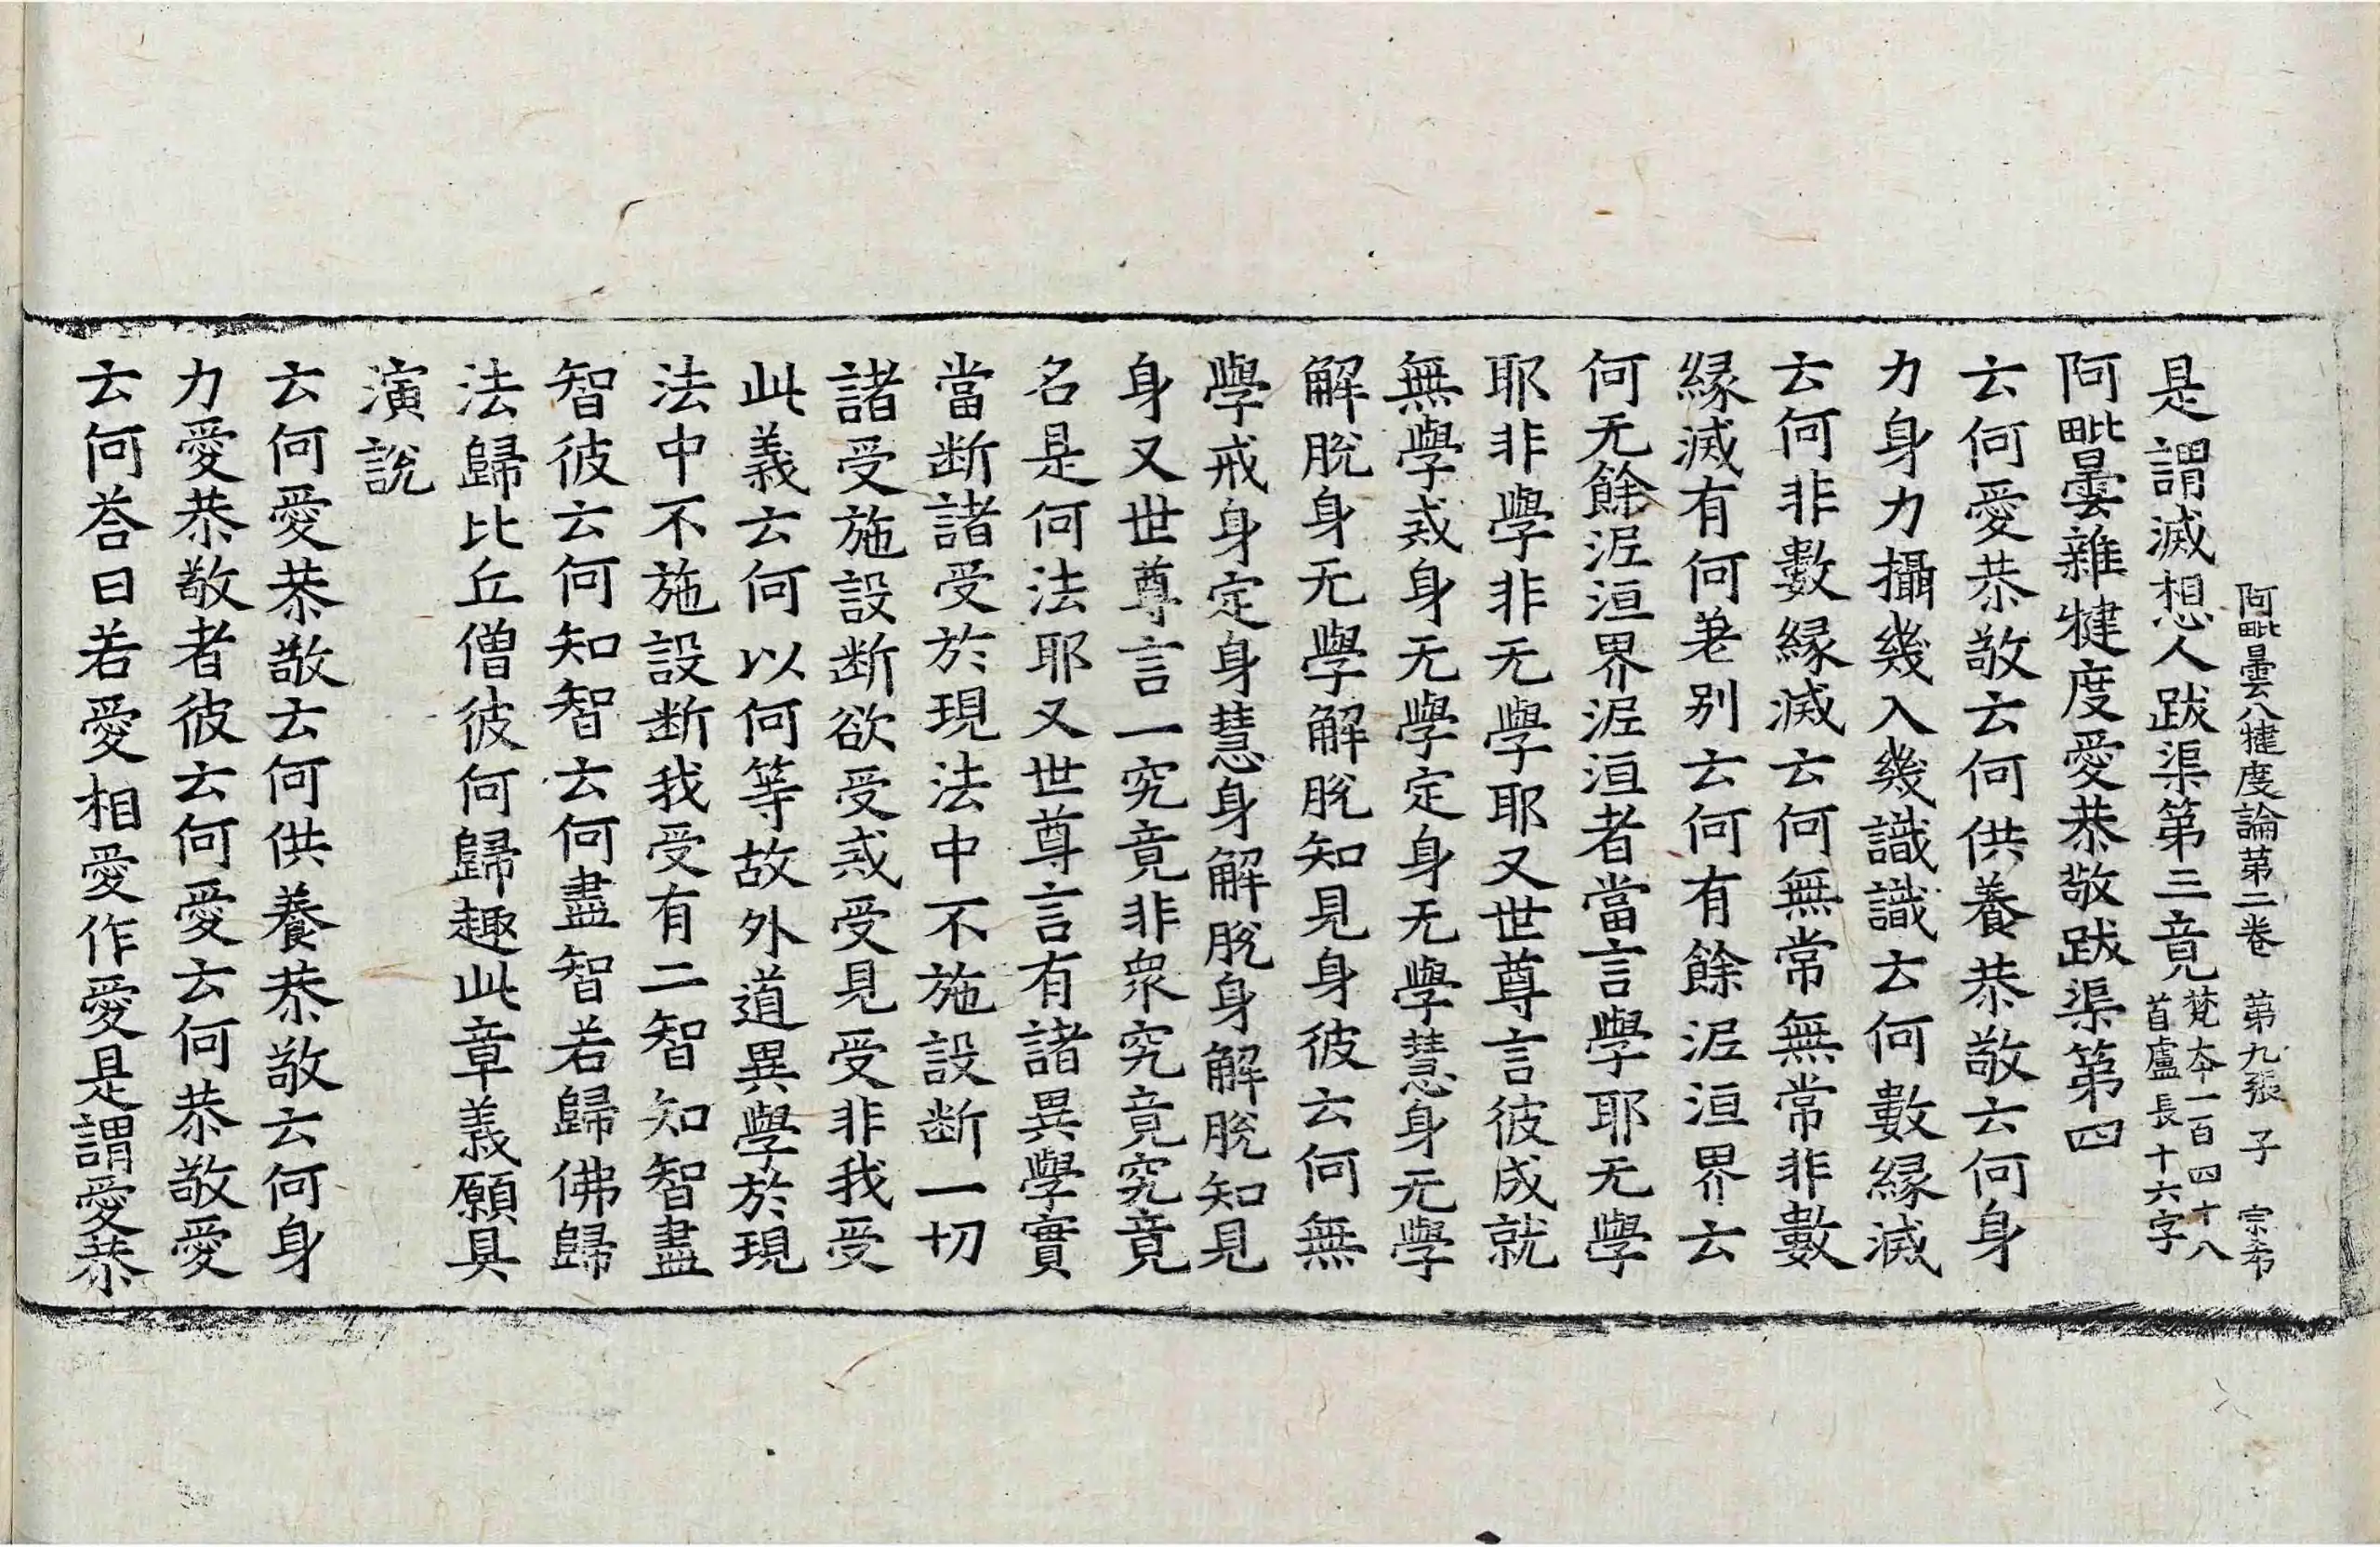 阿毗曇八犍度論第二卷 第九張 子 宗希
是謂滅想人跋渠第三竟 梵本一百四十八
首盧長十六字
阿毗曇雜犍度愛恭敬跋渠第四
云何愛恭敬云何供養恭敬云何身
力身力攝幾入幾識識云何數縁滅
云何非數縁滅云何無常無常非數
縁滅有何差別云何有餘泥洹界云
何无餘泥洹界泥洹者當言學耶无學
耶非學非无學耶又世尊言彼成就
無學戒身无學定身无學慧身无學
解脫身无學解脫知見身彼云何無
學戒身定身慧身解脫身解脫知見
身又世尊言一究竟非衆究竟究竟
名是何法耶又世尊言有諸異學實
當断諸受於現法中不施設断一切
諸受施設断欲受戒受見受非我受
此義云何以何等故外道異學於現
法中不施設断我受有二智知智盡
智彼云何知智云何盡智若歸佛歸
法歸比丘僧彼何歸趣此章義願具
演說
云何愛恭敬云何供養恭敬云何身
力愛恭敬者彼云何愛云何恭敬愛
云何荅曰若愛相愛作愛是謂愛恭